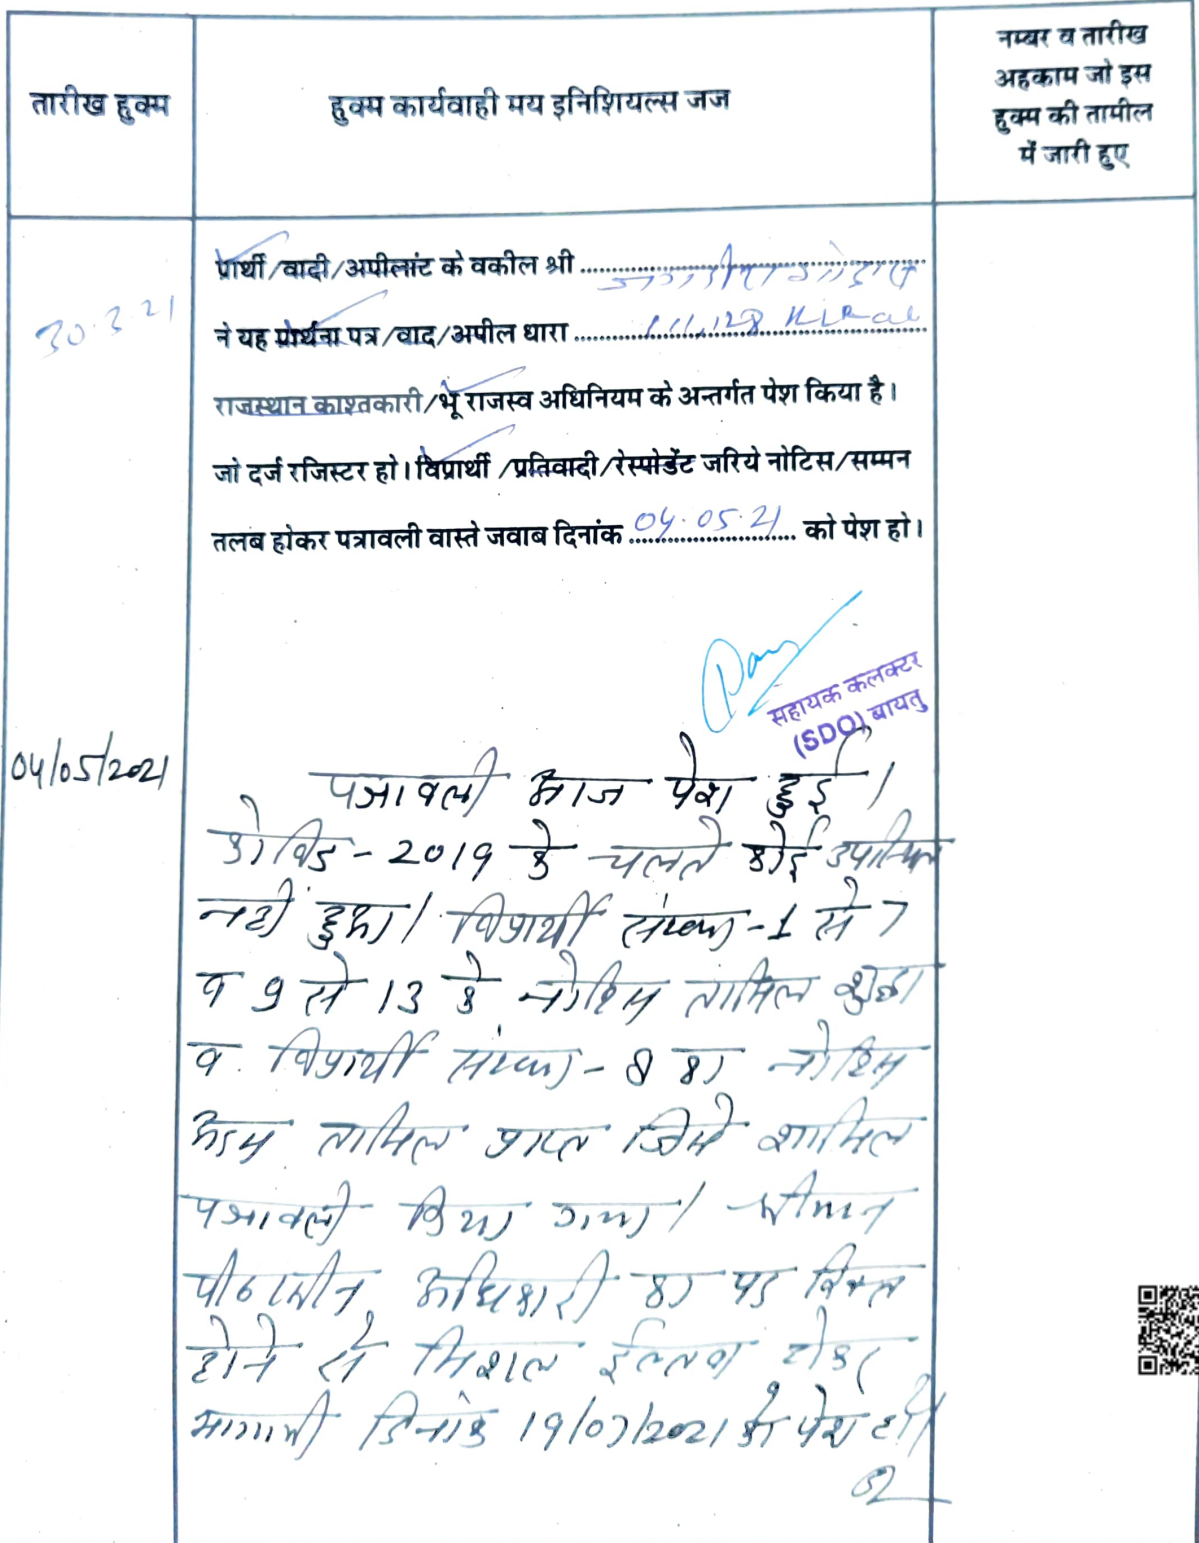 तारीख हुक्म
हुक्म कार्यवाही मय इनिशियल्स जज
नम्बर व तारीख
अहकाम जो इस
हुक्म की तामील
में जारी हुए
30.3.21
प्रार्थी/वादी/अपीलांट के वकील श्री
ने यह प्रार्थना पत्र/वाद/अपील धारा 111,128
राजस्थान काश्तकारी/भू राजस्व अधिनियम के अन्तर्गत पेश किया है।
जो दर्ज रजिस्टर हो। विप्रार्थी /प्रतिवादी/रेस्पोडेंट जरिये नोटिस/सम्मन
तलब होकर पत्रावली वास्ते जवाब दिनांक 04.05.21 को पेश हो।
सहायक कलक्टर
(SDO) बायतु
04/05/2021
पत्रावली आज पेश हुई।
कोविड-2019 के चलते कोई उपस्थित
नहीं हुआ। विप्रार्थी संख्या-1 से 7
व 9 से 13 के नोटिस तामिल शुदा
व विप्रार्थी संख्या-8 का नोटिस
अदम तामिल प्राप्त जिसे शामिल
पत्रावली किया गया। श्रीमान
पीठासीन अधिकारी का पद रिक्त
होने से मिशल ईल्तवा होकर
आगामी दिनांक 19/07/2021 को पेश हो।